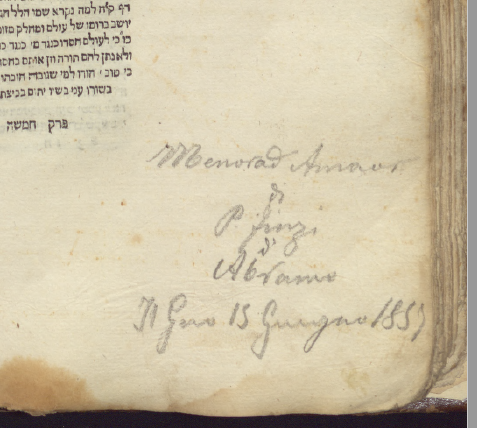 דף ק״ה למה נקרא שמו הלל הג
יושב ברומו של עולם ומחלק מזו
כי לעולם חסדו כנגד מי כנגד
ולא נתן להם תורה וזן אותם בחסד
כי טוב
בשורו עני בשיו יתום בביצת
פרק חמשה
Menorad Amaor
di
P. Finzi
di
Abramo
Il Gno 15 Giugno 1857